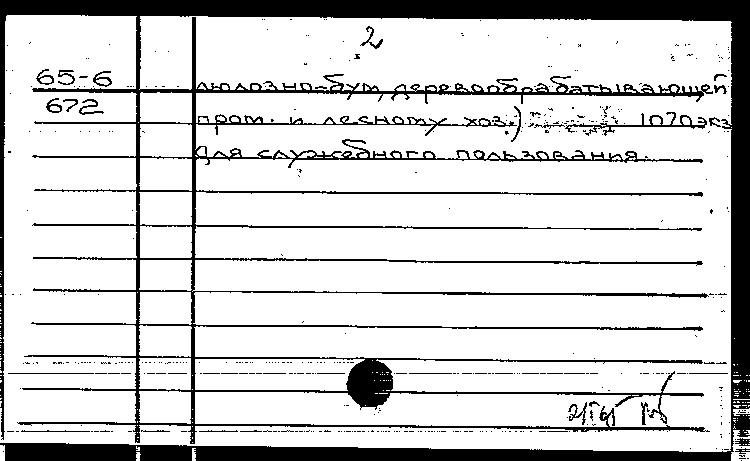 2
65-6 люлозно-бум, деревообрабатывающей
672 пром. и лесному хоз.) 1070 экз
Для служебного пользования.